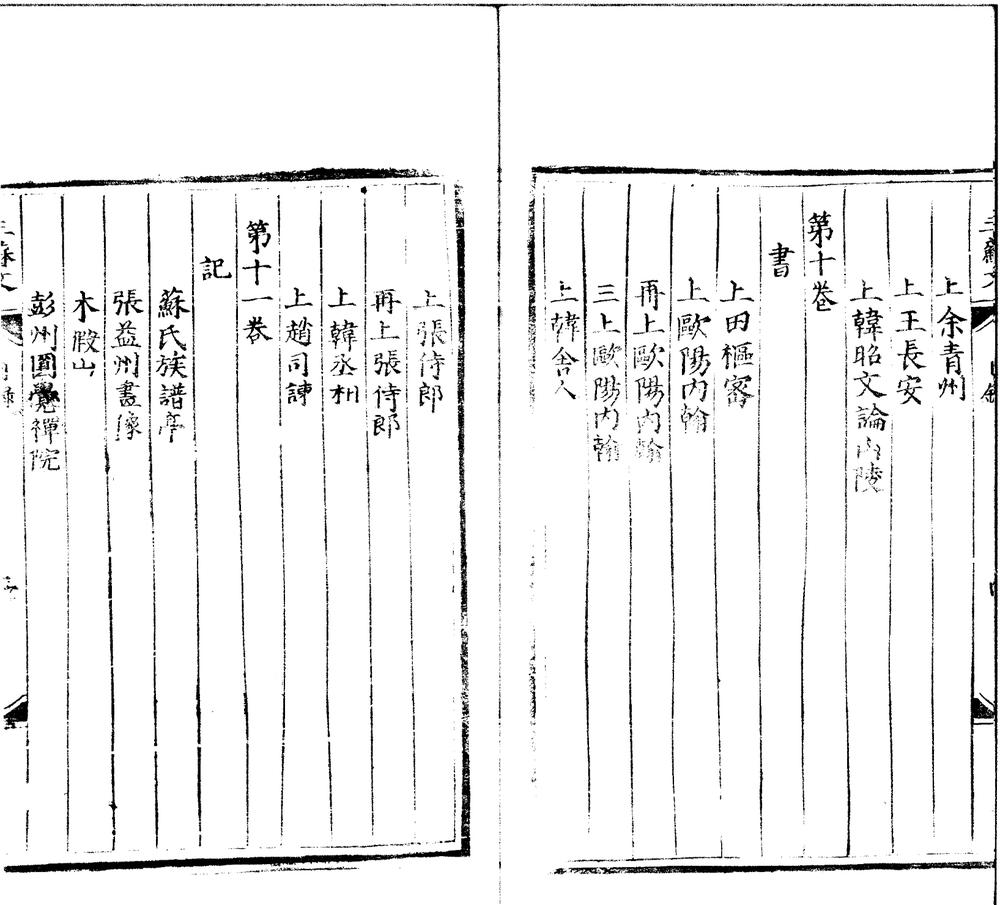 三蘇文
目錄
上余青州
上王長安
上韓昭文論山陵
第十卷
書
上田樞密
上歐陽內翰
再上歐陽內翰
三上歐陽內翰
上韓舍人
上張侍郎
再上張侍郎
上韓丞相
上趙司諫
第十一卷
記
蘇氏族譜亭
張益州畫像
木假山
彭州圓覺禪院
三蘇文
目錄